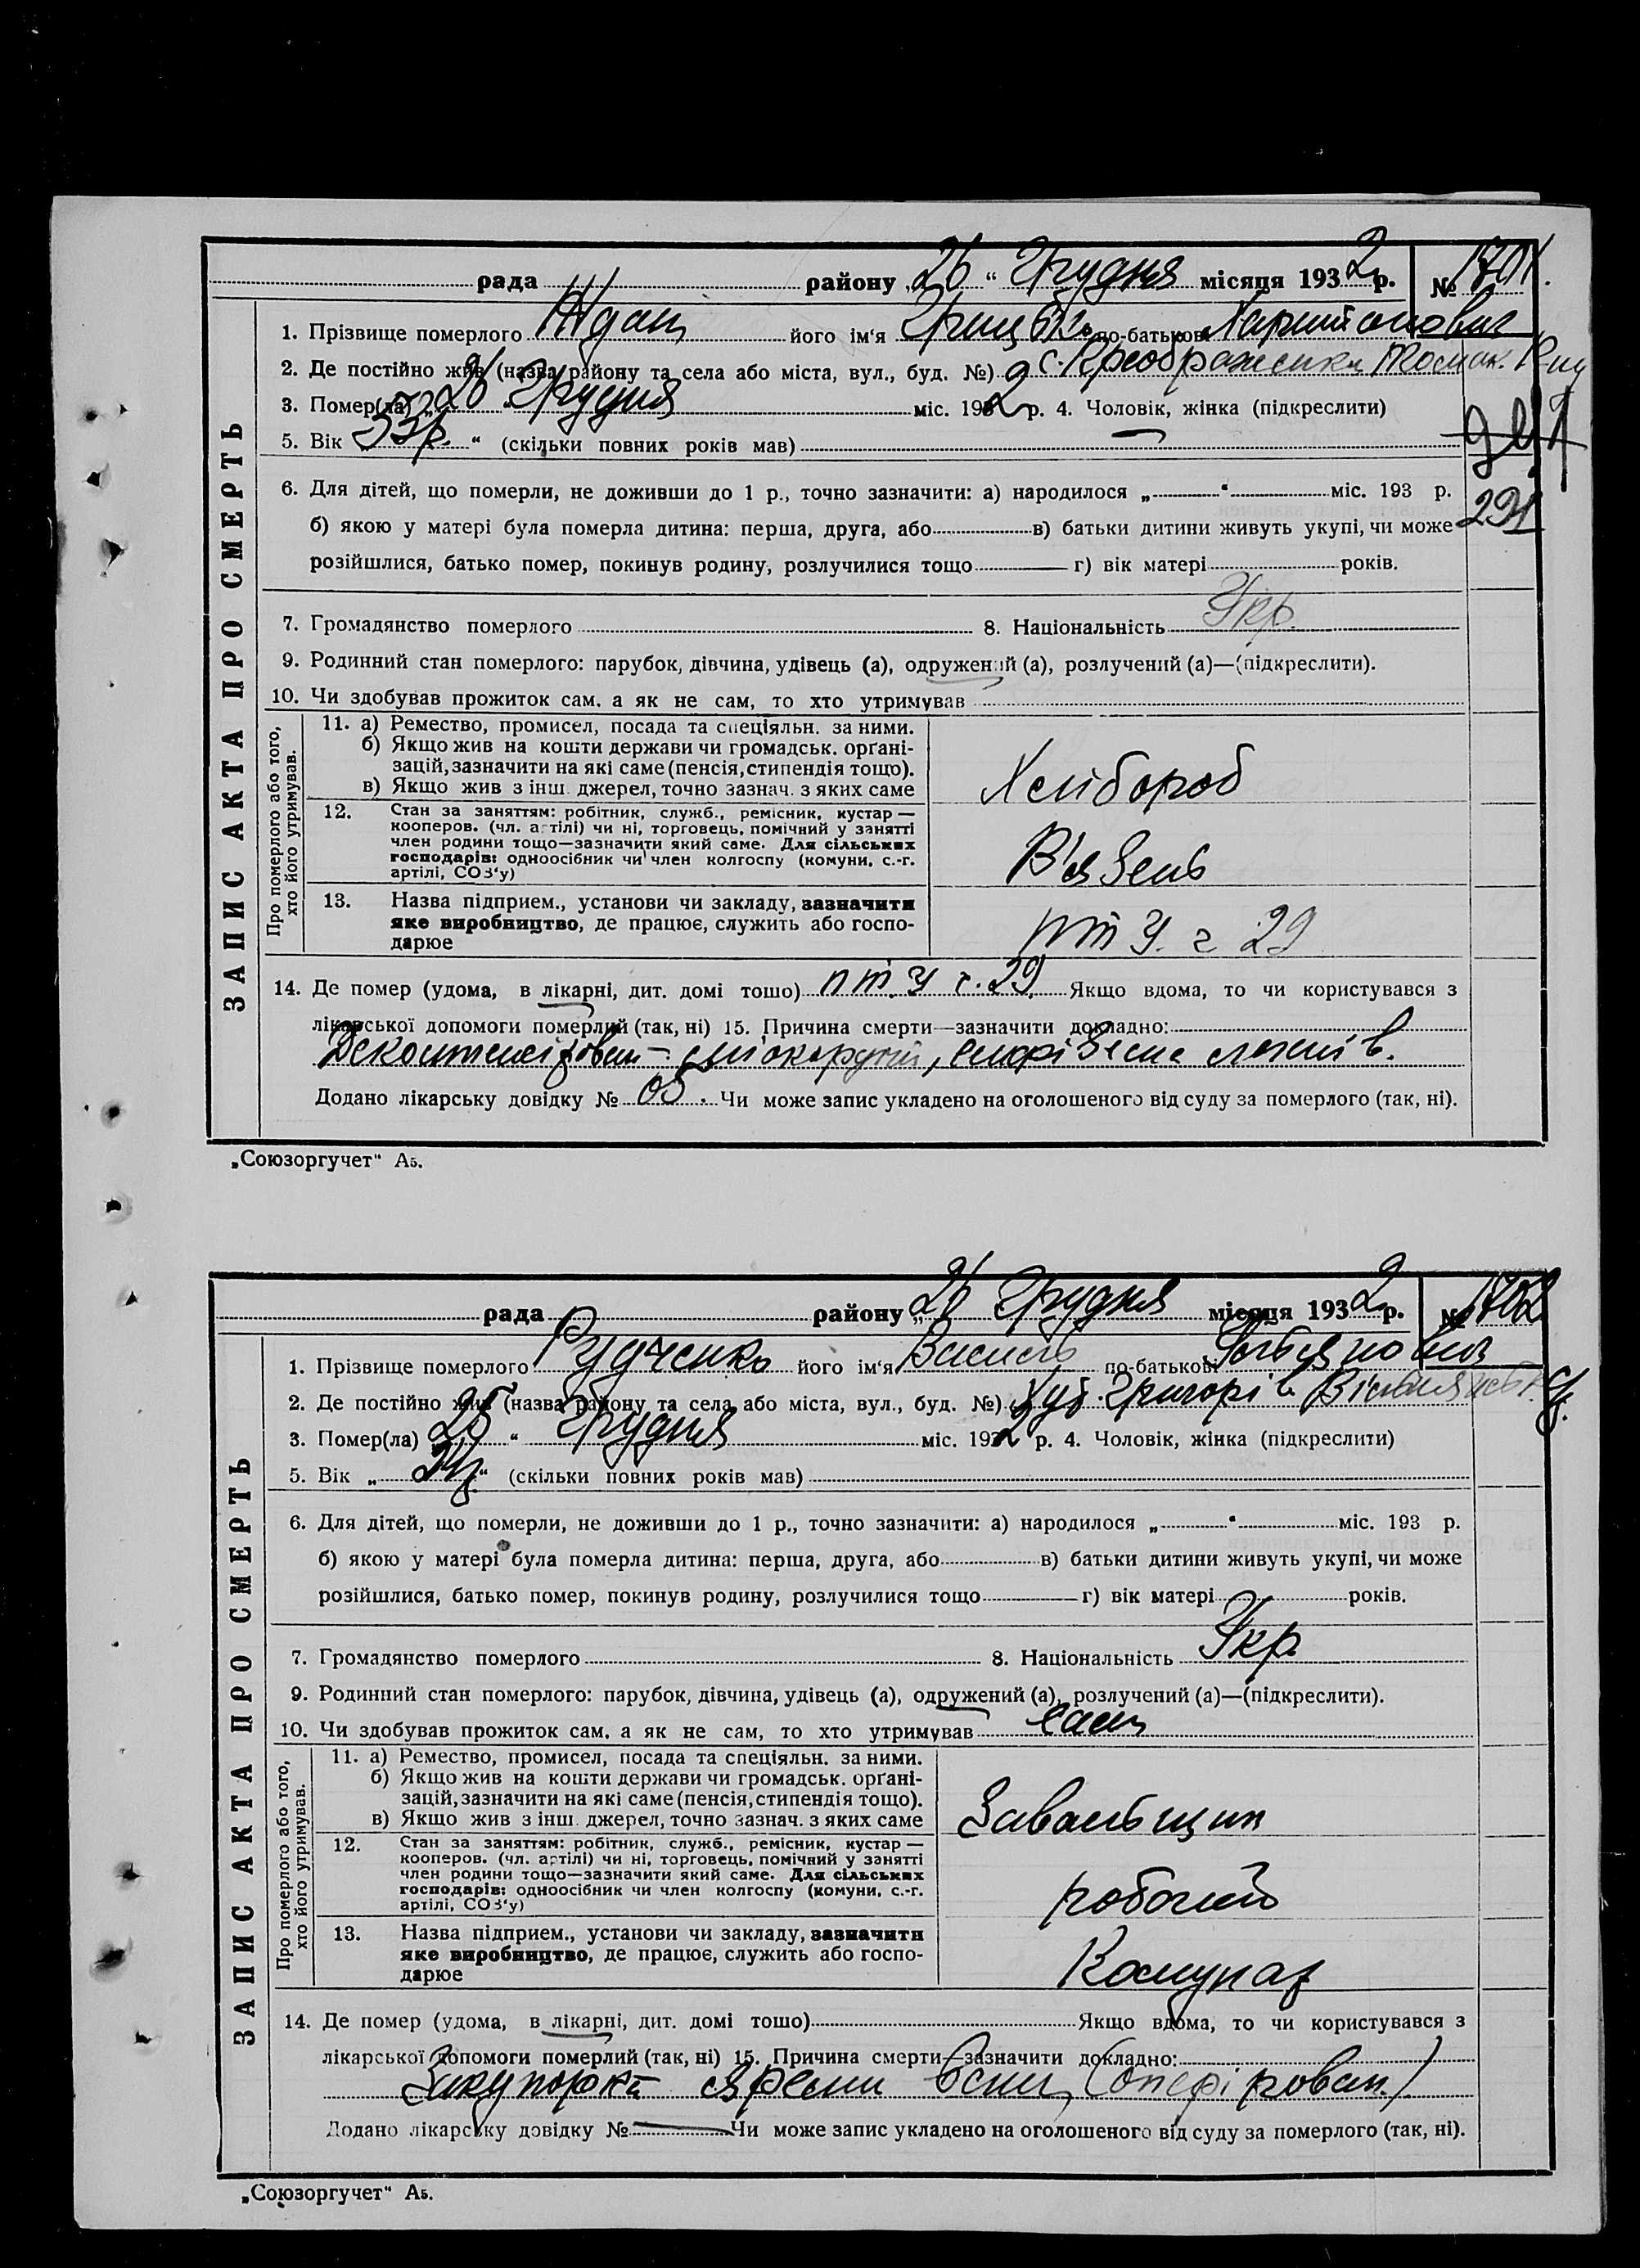 рада района „26“ Грудня місяця 1932 р. № 1701.
ЗАПИС АКТА ПРО СМЕРТЬ
1. Прізвище померлого Ждан його ім‘я Грицько по-батькові Харитонович
2. Де постійно жив (назва району та села або міста, вул., буд. №) с. Преображенка
3. Помер(ла) „26“ Грудня міс. 1932 р. 4. Чоловік, жінка (підкреслити)
5. Вік „53р.“ (скільки повних років мав)
6. Для дітей, що померли, не доживши до 1 р., точно зазначити: а) народилося „ “ міс. 193 р.
291
б) якою у матері була померла дитина: перша, друга, або в) батьки дитини живуть укупі, чи може
розійшлися, батько помер, покинув родину, розлучилися тощо г) вік матері років.
7. Громадянство померлого 8. Національність Укр.
9. Родинний стан померлого: парубок, дівчина, удівець (а), одружений (а), розлучений (а)—(підкреслити).
10. Чи здобував прожиток сам, а як не сам, то хто утримував
Про померлого або того, хто його утримував.
11. а) Ремество, промисел, посада та спеціяльн. за ними.
б) Якщо жив на кошти держави чи громадськ. органі-
зацій, зазначити на які саме (пенсія, стипендія тощо).
в) Якщо жив з інш. джерел, точно зазнач. з яких саме
Хлібороб
12. Стан за заняттям: робітник, служб., ремісник, кустар —
кооперов. (чл. артілі) чи ні, торговець, помічний у занятті
член родини тощо—зазначити який саме. Для сільських
господарів: одноосібник чи член колгоспу (комуни, с.-г.
артілі, СОЗ‘у)
В'язень
13. Назва підприєм., установи чи закладу, зазначити
яке виробництво, де працює, служить або госпо-
дарюе
29
14. Де помер (удома, в лікарні, дит. домі тощо) 29 Якщо вдома, то чи користувався з
лікарської допомоги померлий (так, ні) 15. Причина смерти—зазначити докладно:
міокардит, емфізема легенів.
Додано лікарську довідку № 05. Чи може запис укладено на оголошеного від суду за померлого (так, ні).
„Союзоргучет“ А5.
рада району „26“ Грудня місяця 1932 р. № 1702
ЗАПИС АКТА ПРО СМЕРТЬ
1. Прізвище померлого Рудченко його ім‘я Василь по-батькові
2. Де постійно жив (назва району та села або міста, вул., буд. №) хут. Григорів
3. Помер(ла) „25“ Грудня міс. 1932 р. 4. Чоловік, жінка (підкреслити)
5. Вік „ “ (скільки повних років мав)
6. Для дітей, що померли, не доживши до 1 р., точно зазначити: а) народилося „ “ міс. 193 р.
б) якою у матері була померла дитина: перша, друга, або в) батьки дитини живуть укупі, чи може
розійшлися, батько помер, покинув родину, розлучилися тощо г) вік матері років.
7. Громадянство померлого 8. Національність Укр.
9. Родинний стан померлого: парубок, дівчина, удівець (а), одружений (а), розлучений (а)—(підкреслити).
10. Чи здобував прожиток сам, а як не сам, то хто утримував сам
Про померлого або того, хто його утримував.
11. а) Ремество, промисел, посада та спеціяльн. за ними.
б) Якщо жив на кошти держави чи громадськ. органі-
зацій, зазначити на які саме (пенсія, стипендія тощо).
в) Якщо жив з інш. джерел, точно зазнач. з яких саме
Завальщик
12. Стан за заняттям: робітник, служб., ремісник, кустар —
кооперов. (чл. артілі) чи ні, торговець, помічний у занятті
член родини тощо—зазначити який саме. Для сільських
господарів: одноосібник чи член колгоспу (комуни, с.-г.
артілі, СОЗ‘у)
робочий
13. Назва підприєм., установи чи закладу, зазначити
яке виробництво, де працює, служить або госпо-
дарюе
Комунар
14. Де помер (удома, в лікарні, дит. домі тощо) Якщо вдома, то чи користувався з
лікарської допомоги померлий (так, ні) 15. Причина смерти—зазначити докладно:
Закупорка яремн вени (оперірован.)
Додано лікарську довідку № Чи може запис укладено на оголошеного від суду за померлого (так, ні).
„Союзоргучет“ А5.